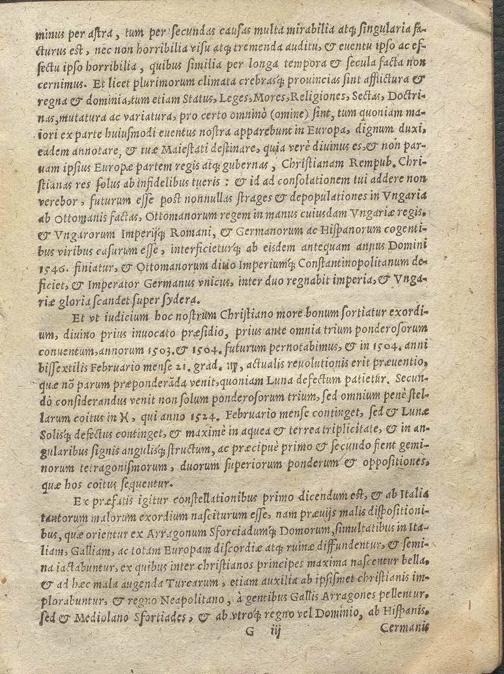 minus per astra, tum per secundas causas multa mirabilia atq; singularia fa-
cturus est, nec non horribilia visu atq; tremenda auditu, & euentu ipso ac ef-
fectu ipso horribilia, quibus similia per longa tempora & secula facta non
cernimus. Et licet plurimorum climata crebrasq; prouincias sint afflictura &
regna & dominia, tum etiam Status, Leges, Mores, Religiones, Sectas, Doctri-
nas, mutatura ac variatura, pro certo omninò (omine) sint, tum quoniam ma-
iori ex parte huiusmodi euentus nostra apparebunt in Europa, dignum duxi,
eadem annotare, & tuæ Maiestati destinare, quia verè diuinus es, & non par-
uam ipsius Europæ partem regis atq; gubernas, Christianam Rempub. Chri-
stianas res solus ab infidelibus tueris : & id ad consolationem tui addere non
verebor, futurum esse post nonnullas strages & depopulationes in Vngaria
ab Ottomanis factas, Ottomanorum regem in manus cuiusdam Vngariæ regis,
& Vngarorum Imperijq; Romani, & Germanorum ac Hispanorum cogenti-
bus viribus casurum esse, interficieturq; ab eisdem antequam annus Domini
1546. finiatur, & Ottomanorum diuo Imperiumq; Constantinopolitanum de-
ficiet, & Imperator Germanus vnicus, inter duo regnabit imperia, & Vnga-
riæ gloria scandet super sydera.
Et vt iudicium hoc nostrum Christiano more bonum sortiatur exordi-
um, diuino prius inuocato præsidio, prius ante omnia trium ponderosorum
conuentum, annorum 1503. & 1504. futurum pernotabimus, & in 1504. anni
bissextilis Februario mense 21. grad. ♍, actualis reuolutionis erit præuentio,
quæ nō parum præponderāda venit, quoniam Luna defectum patietur. Secun-
dò considerandus venit non solum ponderosorum trium, sed omnium penè stel-
larum coitus in ♓, qui anno 1524. Februario mense continget, sed & Lunæ
Solisq; defectus continget, & maximè in aquea & terrea triplicitate, & in an-
gularibus signis angulisq; structum, ac præcipuè primo & secundo fient gemi-
norum tetragonismorum, duorum superiorum ponderum & oppositiones,
quæ hos coitus sequentur.
Ex præfatis igitur constellationibus primo dicendum est, & ab Italia
tantorum malorum exordium nasciturum esse, nam præuijs malis dispositioni-
bus, quæ orientur ex Arragonum Sforciadumq; Domorum, simultatibus in Ita-
liam, Galliam, ac totam Europam discordiæ atq; ruinæ diffundentur, & semi-
na iactabuntur, ex quibus inter christianos principes maxima nascentur bella,
& ad hæc mala augenda Turcarum, etiam auxilia ab ipsismet christianis im-
plorabuntur, & regno Neapolitano, à gentibus Gallis Arragones pellentur,
sed & Mediolano Sfortiades, & ab vtroq; regno vel Dominio, ab Hispanis,
G iij Germanis